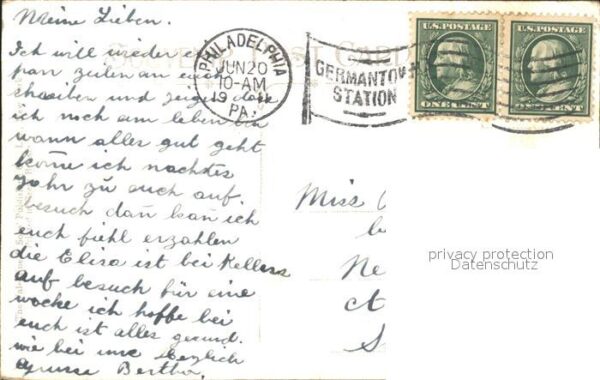 Meine Lieben.
Ich will wieder ein
par zeilen an euch
schreiben und zeigen das
ich noch am leben bin
wann alles gut geht
kome ich nachtes
Jahr zu euch auf.
besuch dan kan ich
euch fiehl erzahlen
die Elisa ist bei Kellers
auf besuch für eine
wocke ich hoffe bei
euch ist alles gesund.
wie bei uns Herzlich
Grusse Bertha.
PHILADELPHIA
JUN 20
10-AM
19
PA.
GERMANTOWN
STATION
U.S. POSTAGE
ONE CENT
U.S. POSTAGE
ONE CENT
POST CARD
Miss
Ne
S
privacy protection
Datenschutz